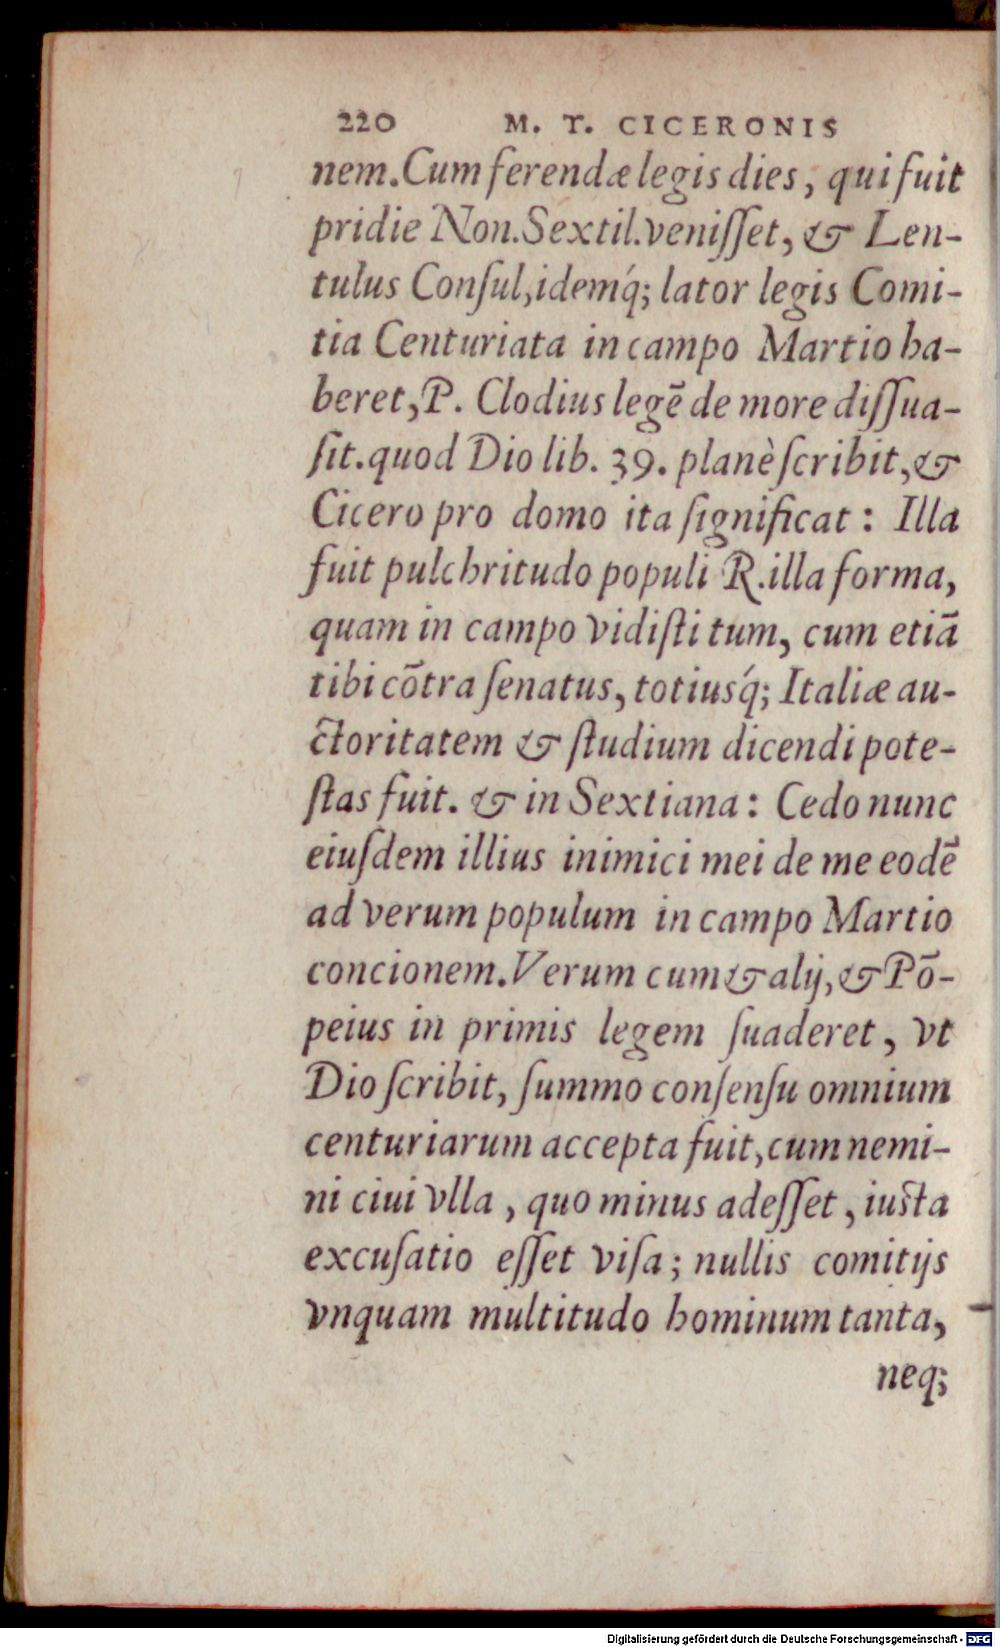 220 M. T. CICERONIS
nem. Cum ferendæ legis dies, qui fuit
pridie Non. Sextil. veniſſet, & Len-
tulus Conſul, idemq́; lator legis Comi-
tia Centuriata in campo Martio ha-
beret, P. Clodius legē de more diſſua-
ſit. quod Dio lib. 39. planè ſcribit, &
Cicero pro domo ita ſignificat: Illa
fuit pulchritudo populi R. illa forma,
quam in campo vidiſti tum, cum etiā
tibi cōtra ſenatus, totiusq́; Italiæ au-
ctoritatem & ſtudium dicendi pote-
ſtas fuit. & in Sextiana: Cedo nunc
eiuſdem illius inimici mei de me eodē
ad verum populum in campo Martio
concionem. Verum cum & alij, & Pō-
peius in primis legem ſuaderet, vt
Dio ſcribit, ſummo conſenſu omnium
centuriarum accepta fuit, cum nemi-
ni ciui vlla, quo minus adeſſet, iusta
excuſatio eſſet viſa; nullis comitijs
vnquam multitudo hominum tanta,
neq;
Digitalisierung gefördert durch die Deutsche Forschungsgemeinschaft - DFG